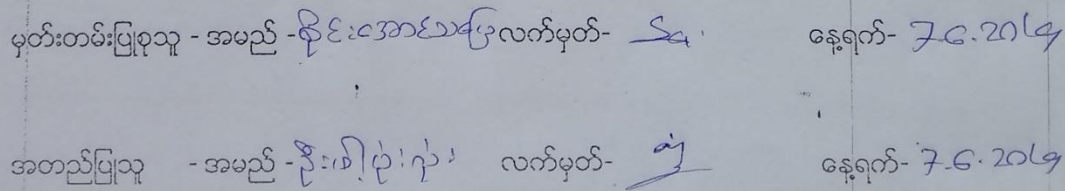 မှတ်းတမ်းပြုစုသူ - အမည် - စိုင်းအောင်သပြေ လက်မှတ်- နေ့ရက်- 7.6.2019
အတည်ပြုသူ - အမည် - ဦး လက်မှတ်- နေ့ရက်- 7.6.2019